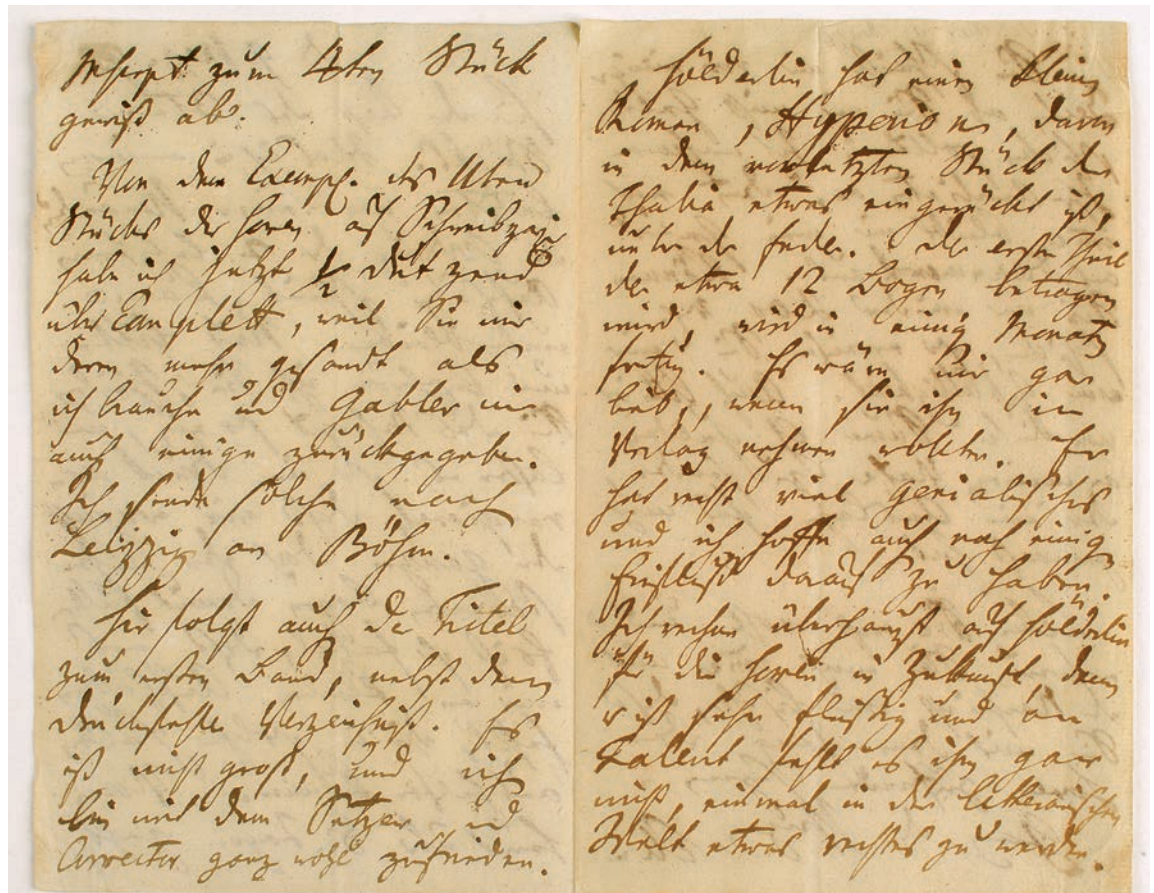 Mscrpt zum 4ten Stück
gewiß ab.
Von den Exempl. des IIten
Stücks der Horen auf Schreibpapier
habe ich jetzt ½ dutzend
über Complett, weil Sie mir
deren mehr gesandt als
ich brauche und Gabler mir
auch einige zurückgegeben.
Ich sende solche nach
Leipzig an Böhm.
Hier folgt auch der Titel
zum ersten Band, nebst dem
Druckfehler Verzeichniß. Es
ist nicht groß, und ich
bin mit dem Setzer und
Corrector ganz wohl zufrieden.
Hölderlin hat einen kleinen
Roman, Hyperion, davon
in dem vorletzten Stück der
Thalia etwas eingerückt ist,
unter der Feder. Der erste Theil
der etwa 12 Bogen betragen
wird, wird in einigen Monaten
fertig. Es wäre mir gar
lieb, wenn Sie ihn in
Verlag nehmen wollten. Er
hat recht viel genialisches
und ich hoffe auch noch einigen
Einfluß darauf zu haben.
Ich rechne überhaupt auf Hölderlin
für die Horen in Zukunft, denn
er ist sehr fleißig und an
Talent fehlt es ihm gar
nicht, einmal in der litterarischen
Welt etwas rechtes zu werden.